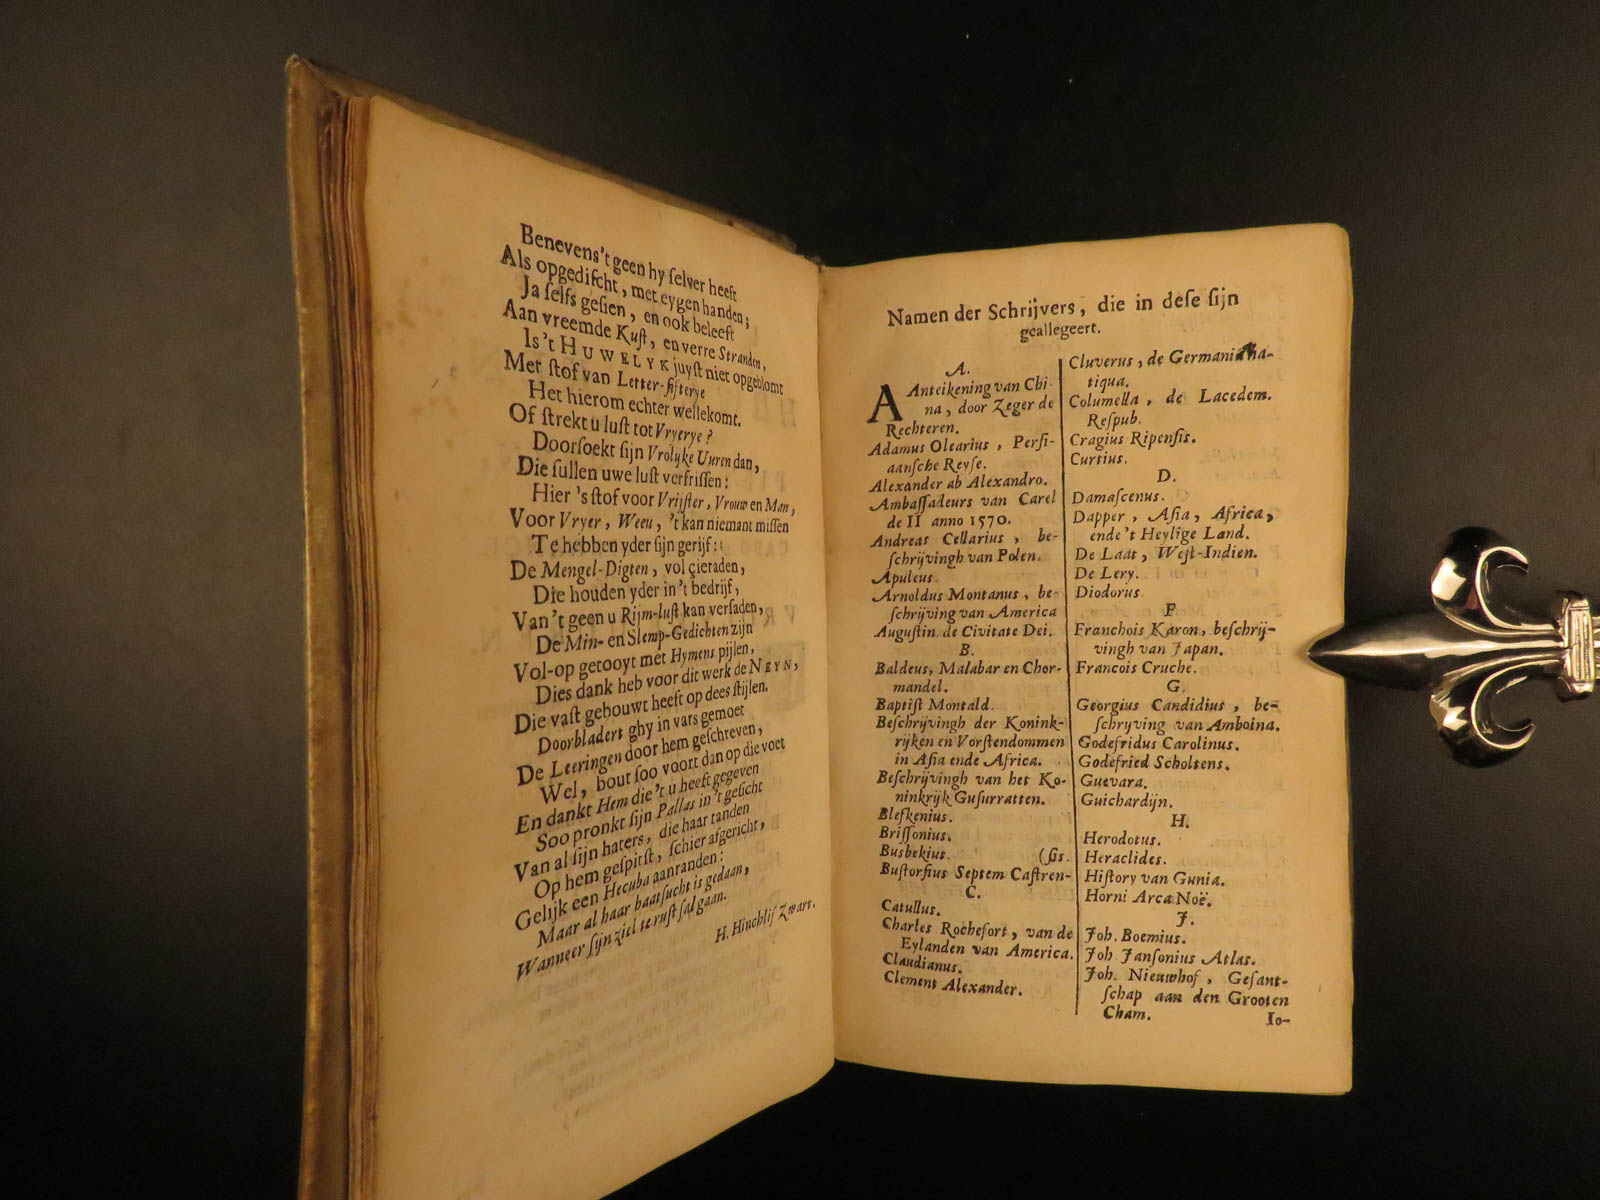 Benevens 't geen hy ſelver heeft
Als opgediſcht, met eygen handen;
Ja ſelfs geſien, en ook beleeft
Aan vreemde Kuſt, en verre Stranden,
Is 't HUWELYK juyſt niet opgeblomt
Met ſtof van Letter-ſiſterye
Het hierom echter wellekomt.
Of ſtrekt u luſt tot Vryerye?
Doorſoekt ſijn Vrolyke Uuren dan,
Die ſullen uwe luſt verfriſſen:
Hier 's ſtof voor Vrijſter, Vrouw en Man,
Voor Vryer, Weeu, 't kan niemant miſſen
Te hebben yder ſijn gerijf:
De Mengel-Digten, vol çieraden,
Die houden yder in 't bedrijf,
Van 't geen u Rijm-luſt kan verſaden,
De Min- en Slemp-Gedichten zijn
Vol-op getooyt met Hymens pijlen,
Dies dank heb voor dit werk de NEYN,
Die vaſt gebouwt heeft op dees ſtijlen.
Doorbladert ghy in vars gemoet
De Leeringen door hem geſchreven,
Wel, bout ſoo voort dan op die voet
En dankt Hem die 't u heeft gegeven
Soo pronkt ſijn Pallas in 't geſicht
Van al ſijn haters, die haar tanden
Op hem geſpitſt, ſchier afgericht,
Gelijk een Hecuba aanranden:
Maar al haar haatſucht is gedaan,
Wanneer ſijn ziel te ruſt ſal gaan.
H. Hinchliſ Zwart.
Namen der Schrijvers, die in deſe ſijn
geallegeert.
A.
AAnteikening van Chi-
na, door Zeger de
Rechteren.
Adamus Olearius, Perſi-
aanſche Reyſe.
Alexander ab Alexandro.
Ambaſſadeurs van Carel
de II anno 1570.
Andreas Cellarius, be-
ſchrijvingh van Polen.
Apuleus.
Arnoldus Montanus, be-
ſchrijving van America
Auguſtin. de Civitate Dei.
B.
Baldeus, Malabar en Chor-
mandel.
Baptiſt Montald.
Beſchrijvingh der Konink-
rijken en Vorſtendommen
in Aſia ende Africa.
Beſchrijvingh van het Ko-
ninkrijk Guſurratten.
Bleſkenius.
Briſſonius.
Busbekius. (ſis.
Buſtorfius Septem Caſtren-
C.
Catullus.
Charles Rochefort, van de
Eylanden van America.
Claudianus.
Clement Alexander.
Cluverus, de Germania
tiqua.
Columella, de Lacedem.
Reſpub.
Cragius Ripenſis.
Curtius.
D.
Damaſcenus.
Dapper, Aſia, Africa,
ende 't Heylige Land.
De Laat, Weſt-Indien.
De Lery.
Diodorus.
F
Franchois Karon, beſchrij-
vingh van Japan.
Francois Cruche.
G.
Georgius Candidius, be-
ſchryving van Amboina.
Godefridus Carolinus.
Godefried Scholtens.
Guevara.
Guichardijn.
H.
Herodotus.
Heraclides.
Hiſtory van Gunia.
Horni Arca Noë.
J.
Joh. Boemius.
Joh Janſonius Atlas.
Joh. Nieuwhof, Geſant-
ſchap aan den Grooten
Cham.
Io-